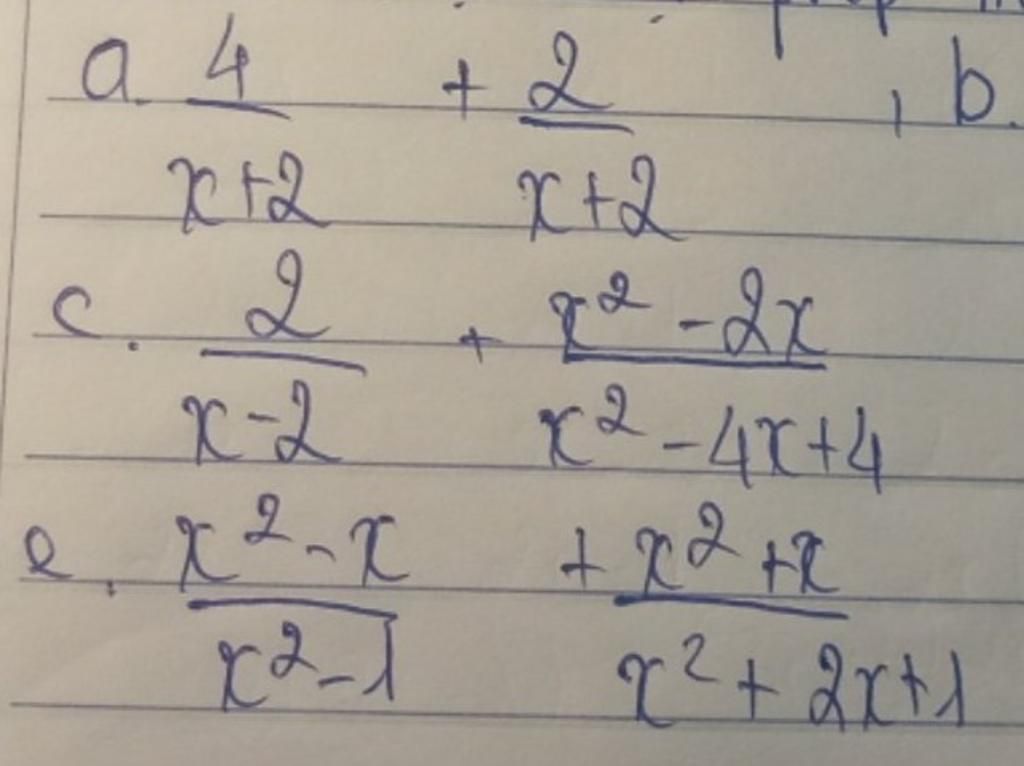 a. 4/(x+2) + 2/(x+2) , b.
c. 2/(x-2) + (x²-2x)/(x²-4x+4)
e. (x²-x)/(x²-1) + (x²+x)/(x²+2x+1)